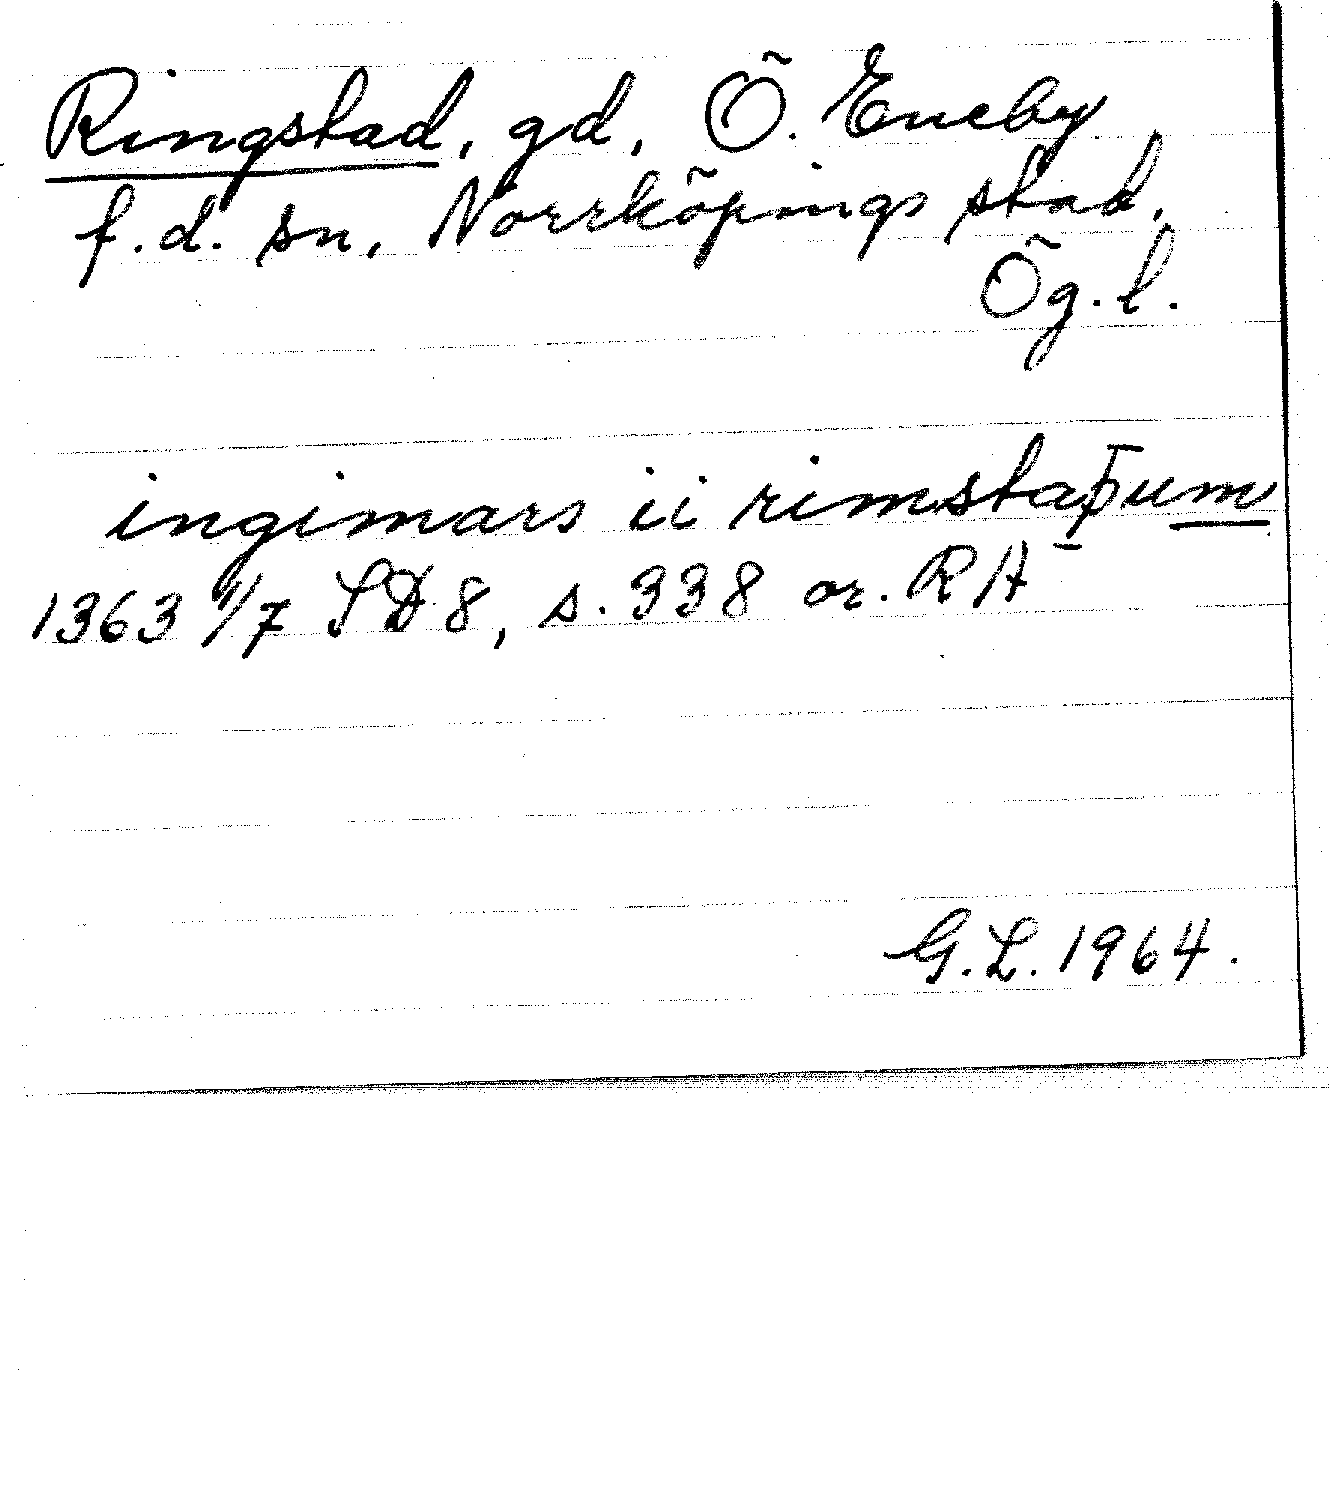 Ringstad, gd, Ö. Eneby
f.d. sn, Norrköpings stad,
Ög. l.
ingimars ii rimstaþum
1363 1/7 SD 8, s. 338 or. RA
G.L. 1964.